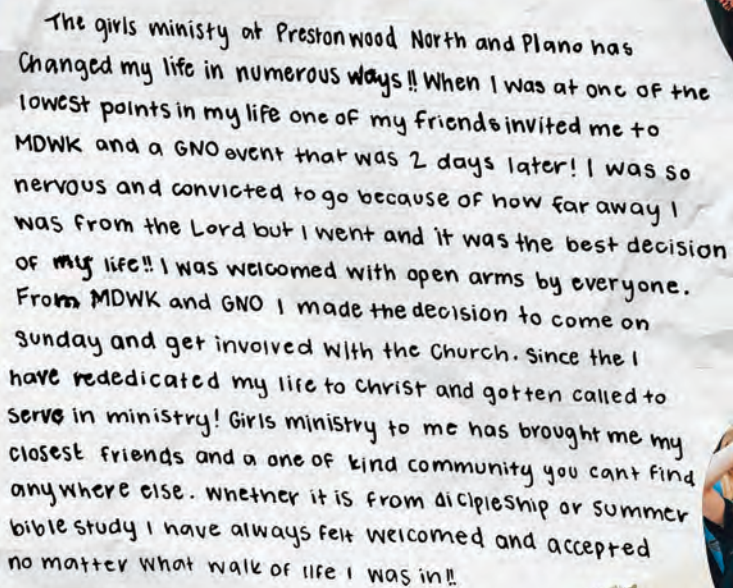 The girls ministy at Prestonwood North and Plano has
Changed my life in numerous ways!! When I was at one of the
lowest points in my life one of my friends invited me to
MDWK and a GNO event that was 2 days later! I was so
nervous and convicted to go because of how far away I
was from the Lord but I went and it was the best decision
of my life!! I was welcomed with open arms by everyone.
From MDWK and GNO I made the decision to come on
Sunday and get involved with the Church. Since the I
have rededicated my life to Christ and gotten called to
serve in ministry! Girls ministry to me has brought me my
closest friends and a one of kind community you cant find
anywhere else. Whether it is from dicipleship or summer
bible study I have always felt welcomed and accepted
no matter what walk of life I was in!!